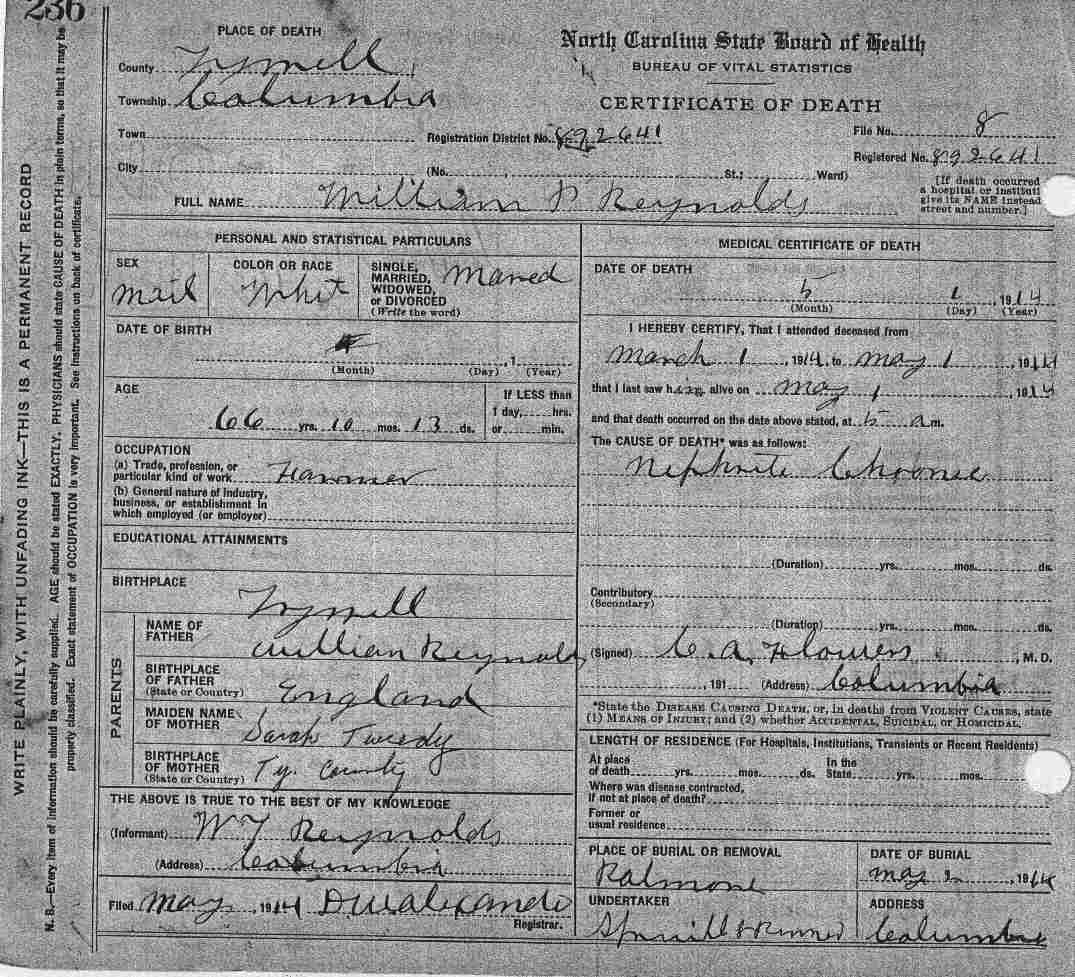 236
WRITE PLAINLY, WITH UNFADING INK—THIS IS A PERMANENT RECORD
N. B.—Every item of information should be carefully supplied. AGE should be stated EXACTLY. PHYSICIANS should state CAUSE OF DEATH in plain terms, so that it may be
properly classified. Exact statement of OCCUPATION is very important. See instructions on back of certificate.
PLACE OF DEATH
County Tyrrell
Township Columbia
Town
City (No. , St.; Ward)
North Carolina State Board of Health
BUREAU OF VITAL STATISTICS
CERTIFICATE OF DEATH
Registration District No. 892641
File No. 8
Registered No. 892641
[If death occurred
a hospital or instituti
give its NAME instead
street and number.]
FULL NAME William Reynolds
PERSONAL AND STATISTICAL PARTICULARS
SEX
Mail
COLOR OR RACE
Whit
SINGLE,
MARRIED,
WIDOWED,
or DIVORCED
(Write the word)
Maried
DATE OF BIRTH
, 1
(Month) (Day) (Year)
AGE
66 yrs. 10 mos. 13 ds.
If LESS than
1 day, hrs.
or min.
OCCUPATION
(a) Trade, profession, or
particular kind of work Farmer
(b) General nature of industry,
business, or establishment in
which employed (or employer)
EDUCATIONAL ATTAINMENTS
BIRTHPLACE
Tyrrell
PARENTS
NAME OF
FATHER
William Reynolds
BIRTHPLACE
OF FATHER
(State or Country)
England
MAIDEN NAME
OF MOTHER
Sarah Tweedy
BIRTHPLACE
OF MOTHER
(State or Country)
Ty. County
THE ABOVE IS TRUE TO THE BEST OF MY KNOWLEDGE
(Informant) W T Reynolds
(Address) Columbia
Filed May , 1914 Registrar.
MEDICAL CERTIFICATE OF DEATH
DATE OF DEATH
5 1 , 1914
(Month) (Day) (Year)
I HEREBY CERTIFY, That I attended deceased from
March 1 , 1914, to May 1 , 1914
that I last saw him alive on May 1 , 1914
and that death occurred on the date above stated, at 5 a m.
The CAUSE OF DEATH* was as follows:
(Duration) yrs. mos. ds.
Contributory
(Secondary)
(Duration) yrs. mos. ds.
(Signed) C. A. Flowers , M. D.
, 191 (Address) Columbia
*State the DISEASE CAUSING DEATH, or, in deaths from VIOLENT CAUSES, state
(1) MEANS OF INJURY; and (2) whether ACCIDENTAL, SUICIDAL, or HOMICIDAL.
LENGTH OF RESIDENCE (For Hospitals, Institutions, Transients or Recent Residents)
At place
of death yrs. mos. ds.
In the
State yrs. mos.
Where was disease contracted,
if not at place of death?
Former or
usual residence
PLACE OF BURIAL OR REMOVAL
DATE OF BURIAL
May 2 , 1914
UNDERTAKER
ADDRESS
Columbia